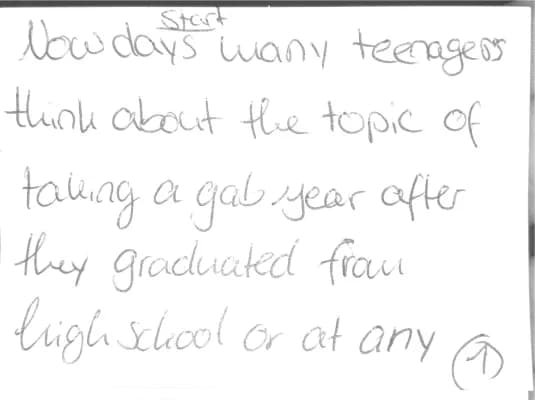 Start
Nowdays many teenagers
think about the topic of
taking a gab year after
they graduated from
high school or at any
1